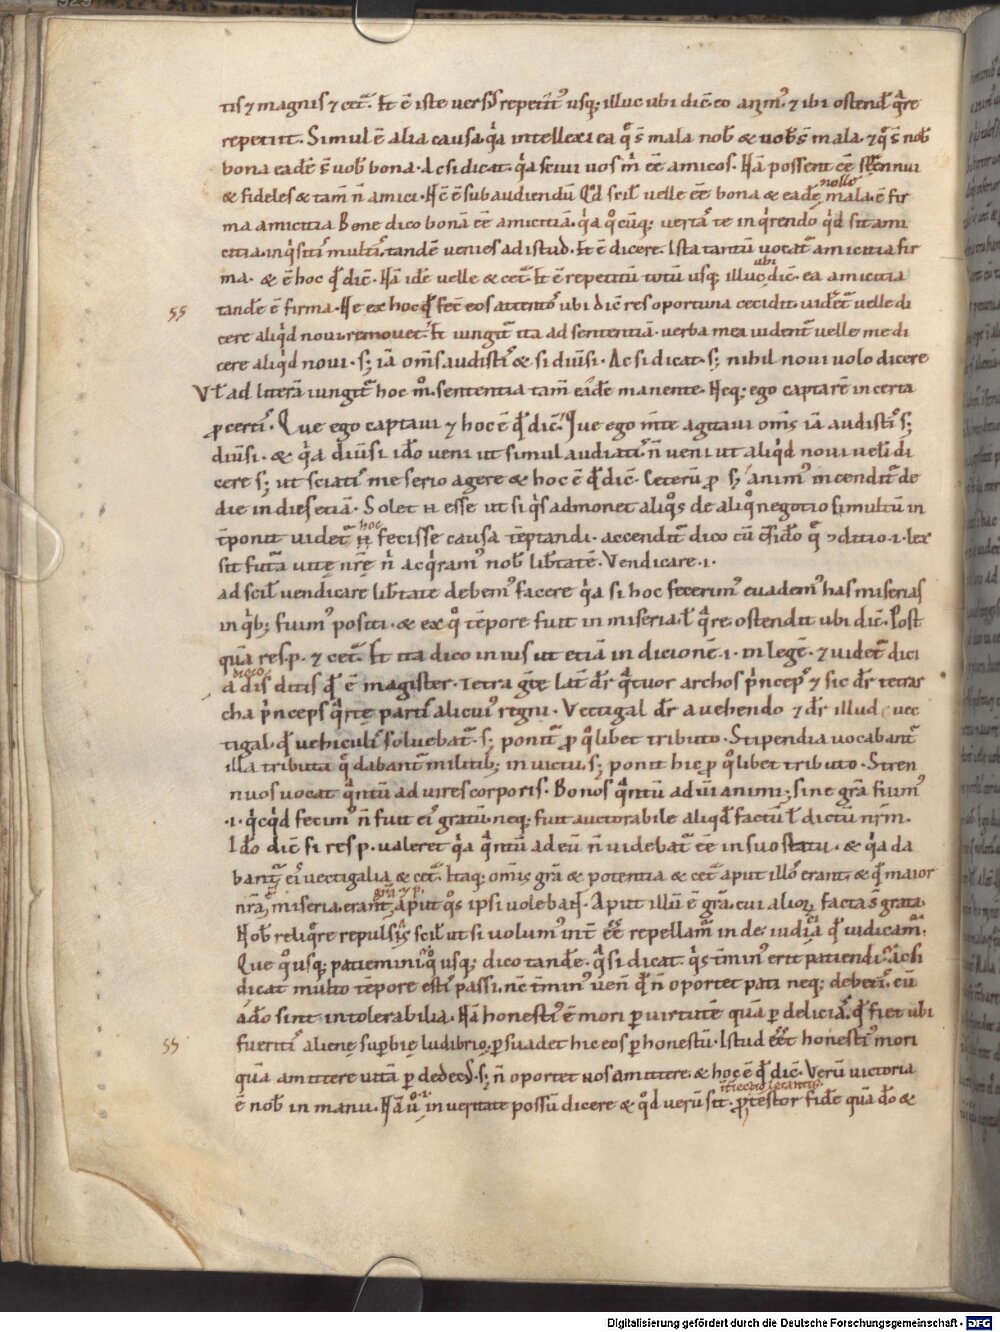 tis ⁊ magnis ⁊ cet̄. Et ē iste uersꝰ repetitꝰ usq; illuc ubi dic̄ eo animꝰ ⁊ ibi ostendit q̄re
repetiit. Simul ē alia causa. q̇a intellexi ea qͦ s̄ mala nob̄ & uob̄ s̄ mala. ⁊ qͦ s̄ nob̄
bona eadē s̄ uob̄ bona. Ac si dicat. q̇a sciui uos m̄ ēē amicos. Nā̄ possent ēē strennui
& fideles & tam̄ n̄ amici. H̄ ē subaudiendū Qd̄ scil̄ uelle ēē bona & eadē nolle mala. ē fir
ma amicitia Bone dico bonā ēē amicitiā. q̇a qͦcūq; uertat̄ te in q̇rendo q̇d sit ami
citia. inq̇sitis multis tandē uenies ad istud. Et ē dicere. Ista tantū uocat̄ amicitia fir
ma. & ē hoc qd̄ dic̄. Nā idē uelle & cet̄. Et ē repetitū totū usq; illuc ubi dic̄. ea amicitia
55
tandē ē firma. Ne ex hoc qd̄ fec̄ eos attentos ubi dic̄ res oportuna cecidit. uideret̄ uelle di
cere aliq̇d noui remouet. Et iungit̄ ita ad sententiā. uerba mea uident̄ uelle me di
cere aliq̇d noui. s; iā om̄s audistis & si diuīsi. Ac si dicat. s; nihil noui uolo dicere
Vl̄ ad litterā iungit̄ hoc mͦ. sententia tam̄ eadē manente. Neq; ego captarē incerta
ꝓ certis. Que ego captaui ⁊ hoc ē qd̄ dic̄. Que ego mente agitaui om̄s iā audistis s;
diuīsi. & q̇a diuīsi id̄o ueni ut simul audiatis. n̄ ueni ut aliq̇d noui uelī di
cere s; ut sciatis me serio agere & hoc ē qd̄ dic̄. Ceterū ꝓ s; animꝰ incendit̄ de
die in dies etiā. Solet n̄ esse ut si q̇s admonet aliqͦs de aliqͦ negotio si multū in
t̄ponit uidet̄ n̄ hoc fecisse causa tēptandi. accendit̄ dico cū c̄sid̄o q̄ ɔditio .i. lex
sit futura uitę nr̄ę n̄ acq̇ramꝰ nob̄ lib̄tatē. Vendicare .i.
ad scil̄ uendicare lib̄tatē debemꝰ facere q̇a si hoc fecerimꝰ euademꝰ has miserias
in q̇b; fuimꝰ positi. & ex qͦ tēpore fuit in miseria. l̄ q̄re. ostendit ubi dic̄. Post
quā res.p. ⁊ cet̄. Et ita dico in ius ut etiā in dicionē .i. in legē. ⁊ uidet̄ dici
dicio
a dis ditis qd̄ ē magister. Tetra grēce Lat̄ dr̄ q̄tuor archos ṗnceps ⁊ sic dr̄ tetrar
cha ṗnceps q̄rtę partis alicuiꝰ regni. Vectigal dr̄ a uehendo ⁊ dr̄ illud uec
tigal qd̄ uehiculis soluebat̄. s; ponit̄ ꝓ qͦlibet tributo. Stipendia uocabant̄
illa tributa qͦ dabant̄ militib; in uictu. s; ponit hic ꝓ qͦlibet tributo. Stren
nuos uocat q̇ntū ad uires corporis. Bonos q̇ntū ad uim animi; sine gr̄a fuimꝰ
.i. q̇cq̇d fecimꝰ n̄ fuit eis gratū. neq; fuit auctorabile aliqd̄ factū l̄ dictū nr̄m.
Id̄o dic̄ si res p. ualeret q̇a q̇ntū ad eū n̄ uidebat̄ ēē in suo statu. & q̇a da
bant̄ eis uectigalia & cet̄. Itaq; om̄is gr̄a & potentia & cet̄ aput illos erant. & qd̄ maior
gr̄a ⁊ p.
nr̄a ē miseria. erant aput qͦs ipsi uolebant. Aput illū ē gr̄a. cui alioꝝ facta s̄ grata
Nob̄ reliq̄re repulsas scil̄ ut si uolumꝰ int̄ ēē repellamꝰ inde. iudicia qd̄ iudicamꝰ.
Que qͦusq; patiemini qͦusq; dico tandē. q̄si dicat. q̇s t̄minꝰ erit patiendi. ac si
dicat multo tēpore estis passi. nc̄ t̄minꝰ uenit qd̄ n̄ oportet pati neq; debetis. cū
ad̄o sint intolerabilia. Nā honestiꝰ ē mori ꝑ uirtutē quā ꝑ delicias. qd̄ fiet ubi
55
fueritis alienę suꝑbię ludibrio. ꝑsuadet hic eos ꝑ honestū. Istud eēt honestiꝰ mori
quā amittere uitā ꝑ dedecꝰ. s; n̄ oportet uos amittere. & hoc ē qd̄ dic̄. Verū uictoria
īt̄iectio letantis.
ē nob̄ in manu. Nā uͦ .i. in ueritate possū dicere & qͦd uerū sit. ꝓtestor fidē quā do &
Digitalisierung gefördert durch die Deutsche Forschungsgemeinschaft - DFG